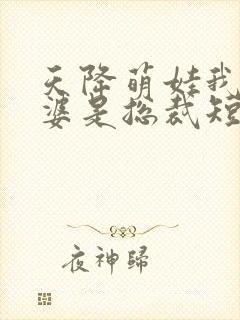 天降萌娃我
婆是总裁短
夜神歸